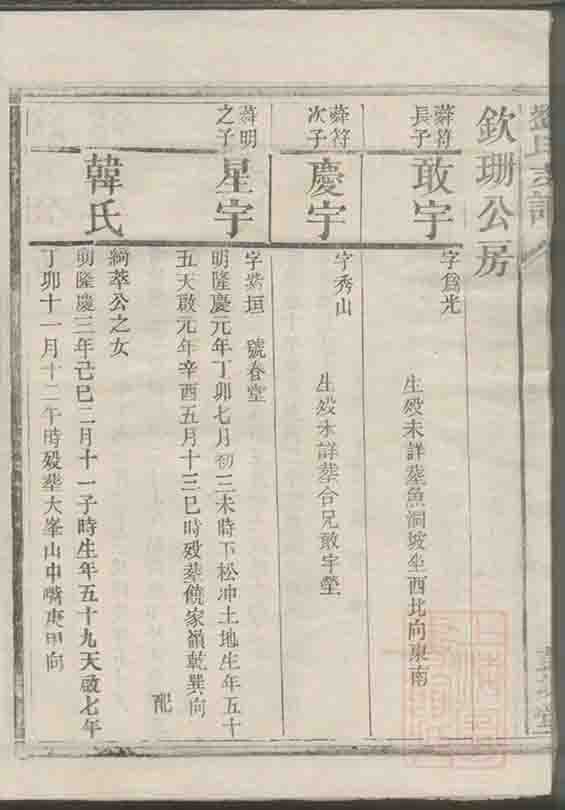 欽珊公房
蕣符
長子
敢宇
字爲光
生殁未詳葬魚洞坡坐西北向東南
蕣符
次子
慶宇
字秀山
生殁未詳葬合兄敢宇塋
蕣明
之子
星宇
字 垣 號春堂
明隆慶元年丁卯七月初三未時下松冲土地生年五十
五天啟元年辛酉五月十三巳時殁葬饒家嶺乾巽向
配
韓氏
綺萃公之女
明隆慶三年己巳二月十一子時生年五十九天啟七年
丁卯十一月十二午時殁葬大峯山中嘴庚甲向